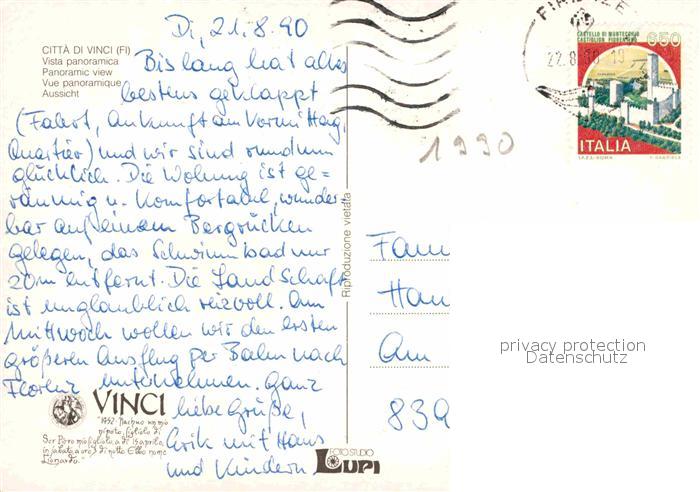 CITTÀ DI VINCI (FI)
Vista panoramica
Panoramic view
Vue panoramique
Aussicht
Di, 21.8.90
Bislang hat alles
bestens geklappt
(Fahrt, Ankunft am Vormittag,
Quartier) und wir sind rundum
glücklich. Die Wohnung ist ge-
räumig u. komfortabel, wunder-
bar auf einem Bergrücken
gelegen, das Schwimmbad nur
20m entfernt. Die Landschaft
ist unglaublich reizvoll. Am
Mittwoch wollen wir den ersten
größeren Ausflug per Bahn nach
Florenz unternehmen. Ganz
liebe Grüße,
Erik mit Hans
und Kindern
VINCI
"1452. Nachue un mio
nipote, figliolo di
Ser Piero mio figliolo, a dì 15 aprile,
in sabato, a ore 3 di notte. Ebbe nome
Lionardo."
FOTO STUDIO
LUPI
Riproduzione vietata
FIRENZE
22.8.90 19
CASTELLO DI MONTECCHIO
CASTIGLION FIORENTINO
650
ITALIA
I.P.Z.S. ROMA
1990
Fam
Han
Am
839
privacy protection
Datenschutz